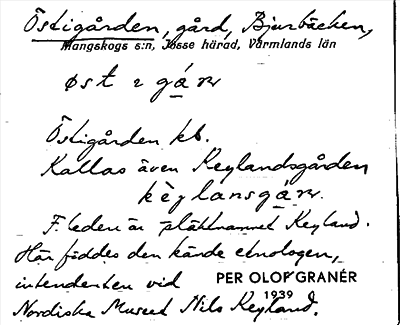 Östigården, gård, Bjurbäcken,
Mangskogs s:n, Jösse härad, Värmlands län
øst ɿ gá̱ɴ
Östigården kb.
Kallas även Keylandsgården
kèylansgá̱ɴ.
F. leden är släktnamnet Keyland.
Här föddes den kände etnologen,
intendenten vid PER OLOF GRANÉR
Nordiska Museet Nils Keyland. 1939